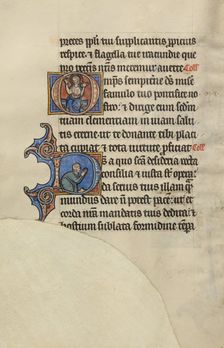 preces ppli tui supplicantis ppicius
respice · ⁊ flagella tue iracundie que
pro peccis nr̃is meremur auerte Coll
mps sempiterne ds mise
famulo tuo pontifice no
stro · ⁊ dirige eum scdm
tuam clementiam in uiam salu
tis eterne ut te donante tibi placi
ta cupiat ⁊ tota uirtute pficiat Coll
s a quo scā desideria recta
consilia ⁊ iusta st opera
da seruis tuis illam q̃
mundus dare ñ potest pacem · ut et
corda nr̃a mandatis tuis dedita · ⁊
hostium sublata formidine tempa